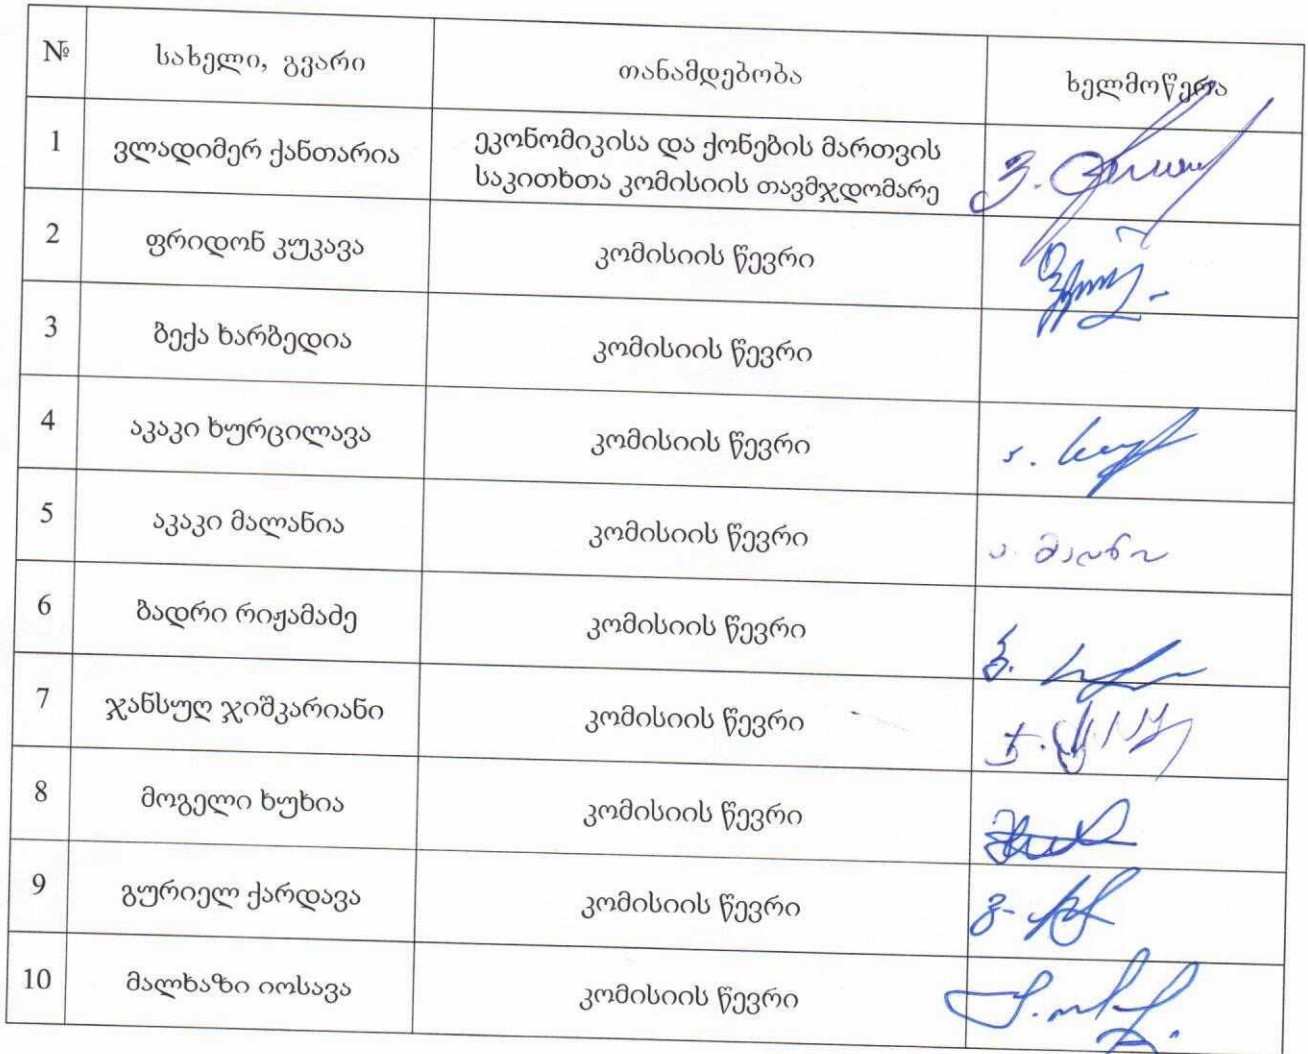 № სახელი, გვარი თანამდებობა ხელმოწერა
1 ვლადიმერ ქანთარია ეკონომიკისა და ქონების მართვის
საკითხთა კომისიის თავმჯდომარე
2 ფრიდონ კუკავა კომისიის წევრი
3 ბექა ხარბედია კომისიის წევრი
4 აკაკი ხურცილავა კომისიის წევრი
5 აკაკი მალანია კომისიის წევრი
6 ბადრი რიჟამაძე კომისიის წევრი
7 ჯანსუღ ჯიშკარიანი კომისიის წევრი
8 მოგელი ხუხია კომისიის წევრი
9 გურიელ ქარდავა კომისიის წევრი
10 მალხაზი იოსავა კომისიის წევრი